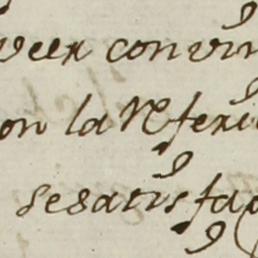 veer convin
on la Referi
se satisfa